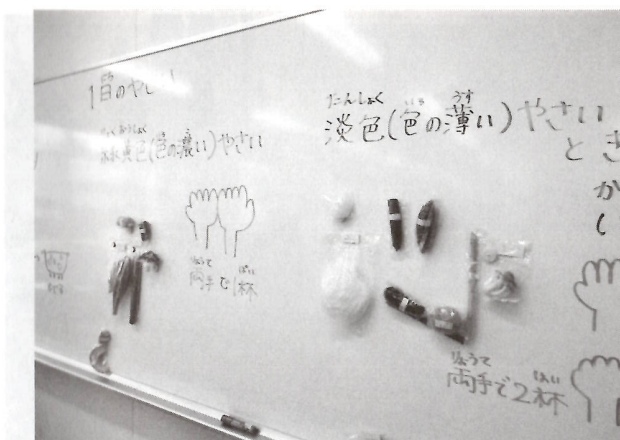 1日のやさい
緑黄色(色の濃い)やさい
両手で1杯
たんしょく いろ うす
淡色(色の薄い)やさい
と き
か
し
りょうて はい
両手で2杯